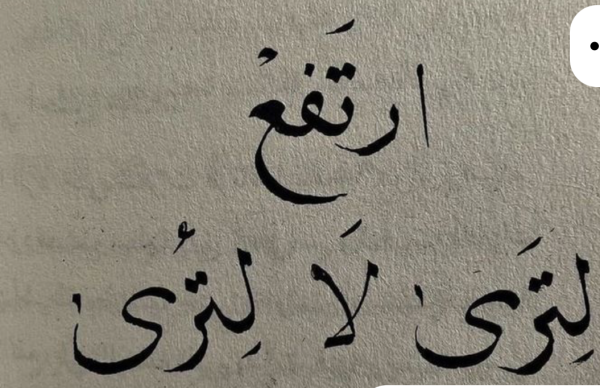 ارتَفعْ
لِترَى لَا لِتُرَى